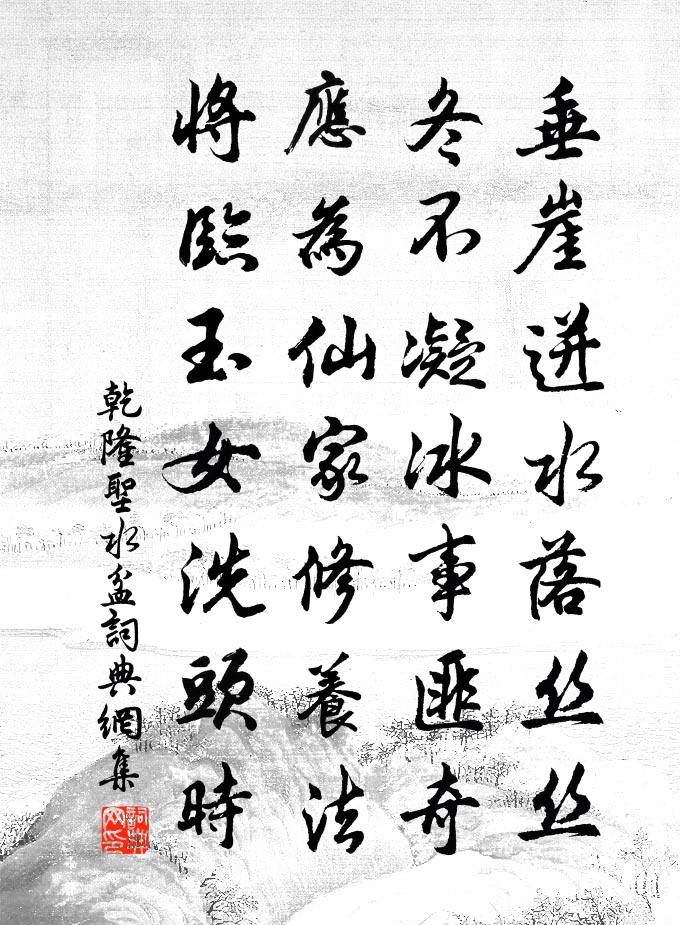 垂崖迸水落丝丝
冬不凝冰事匪奇
應為仙家修養法
將臨玉女洗頭時
乾隆聖水盆詞典網集